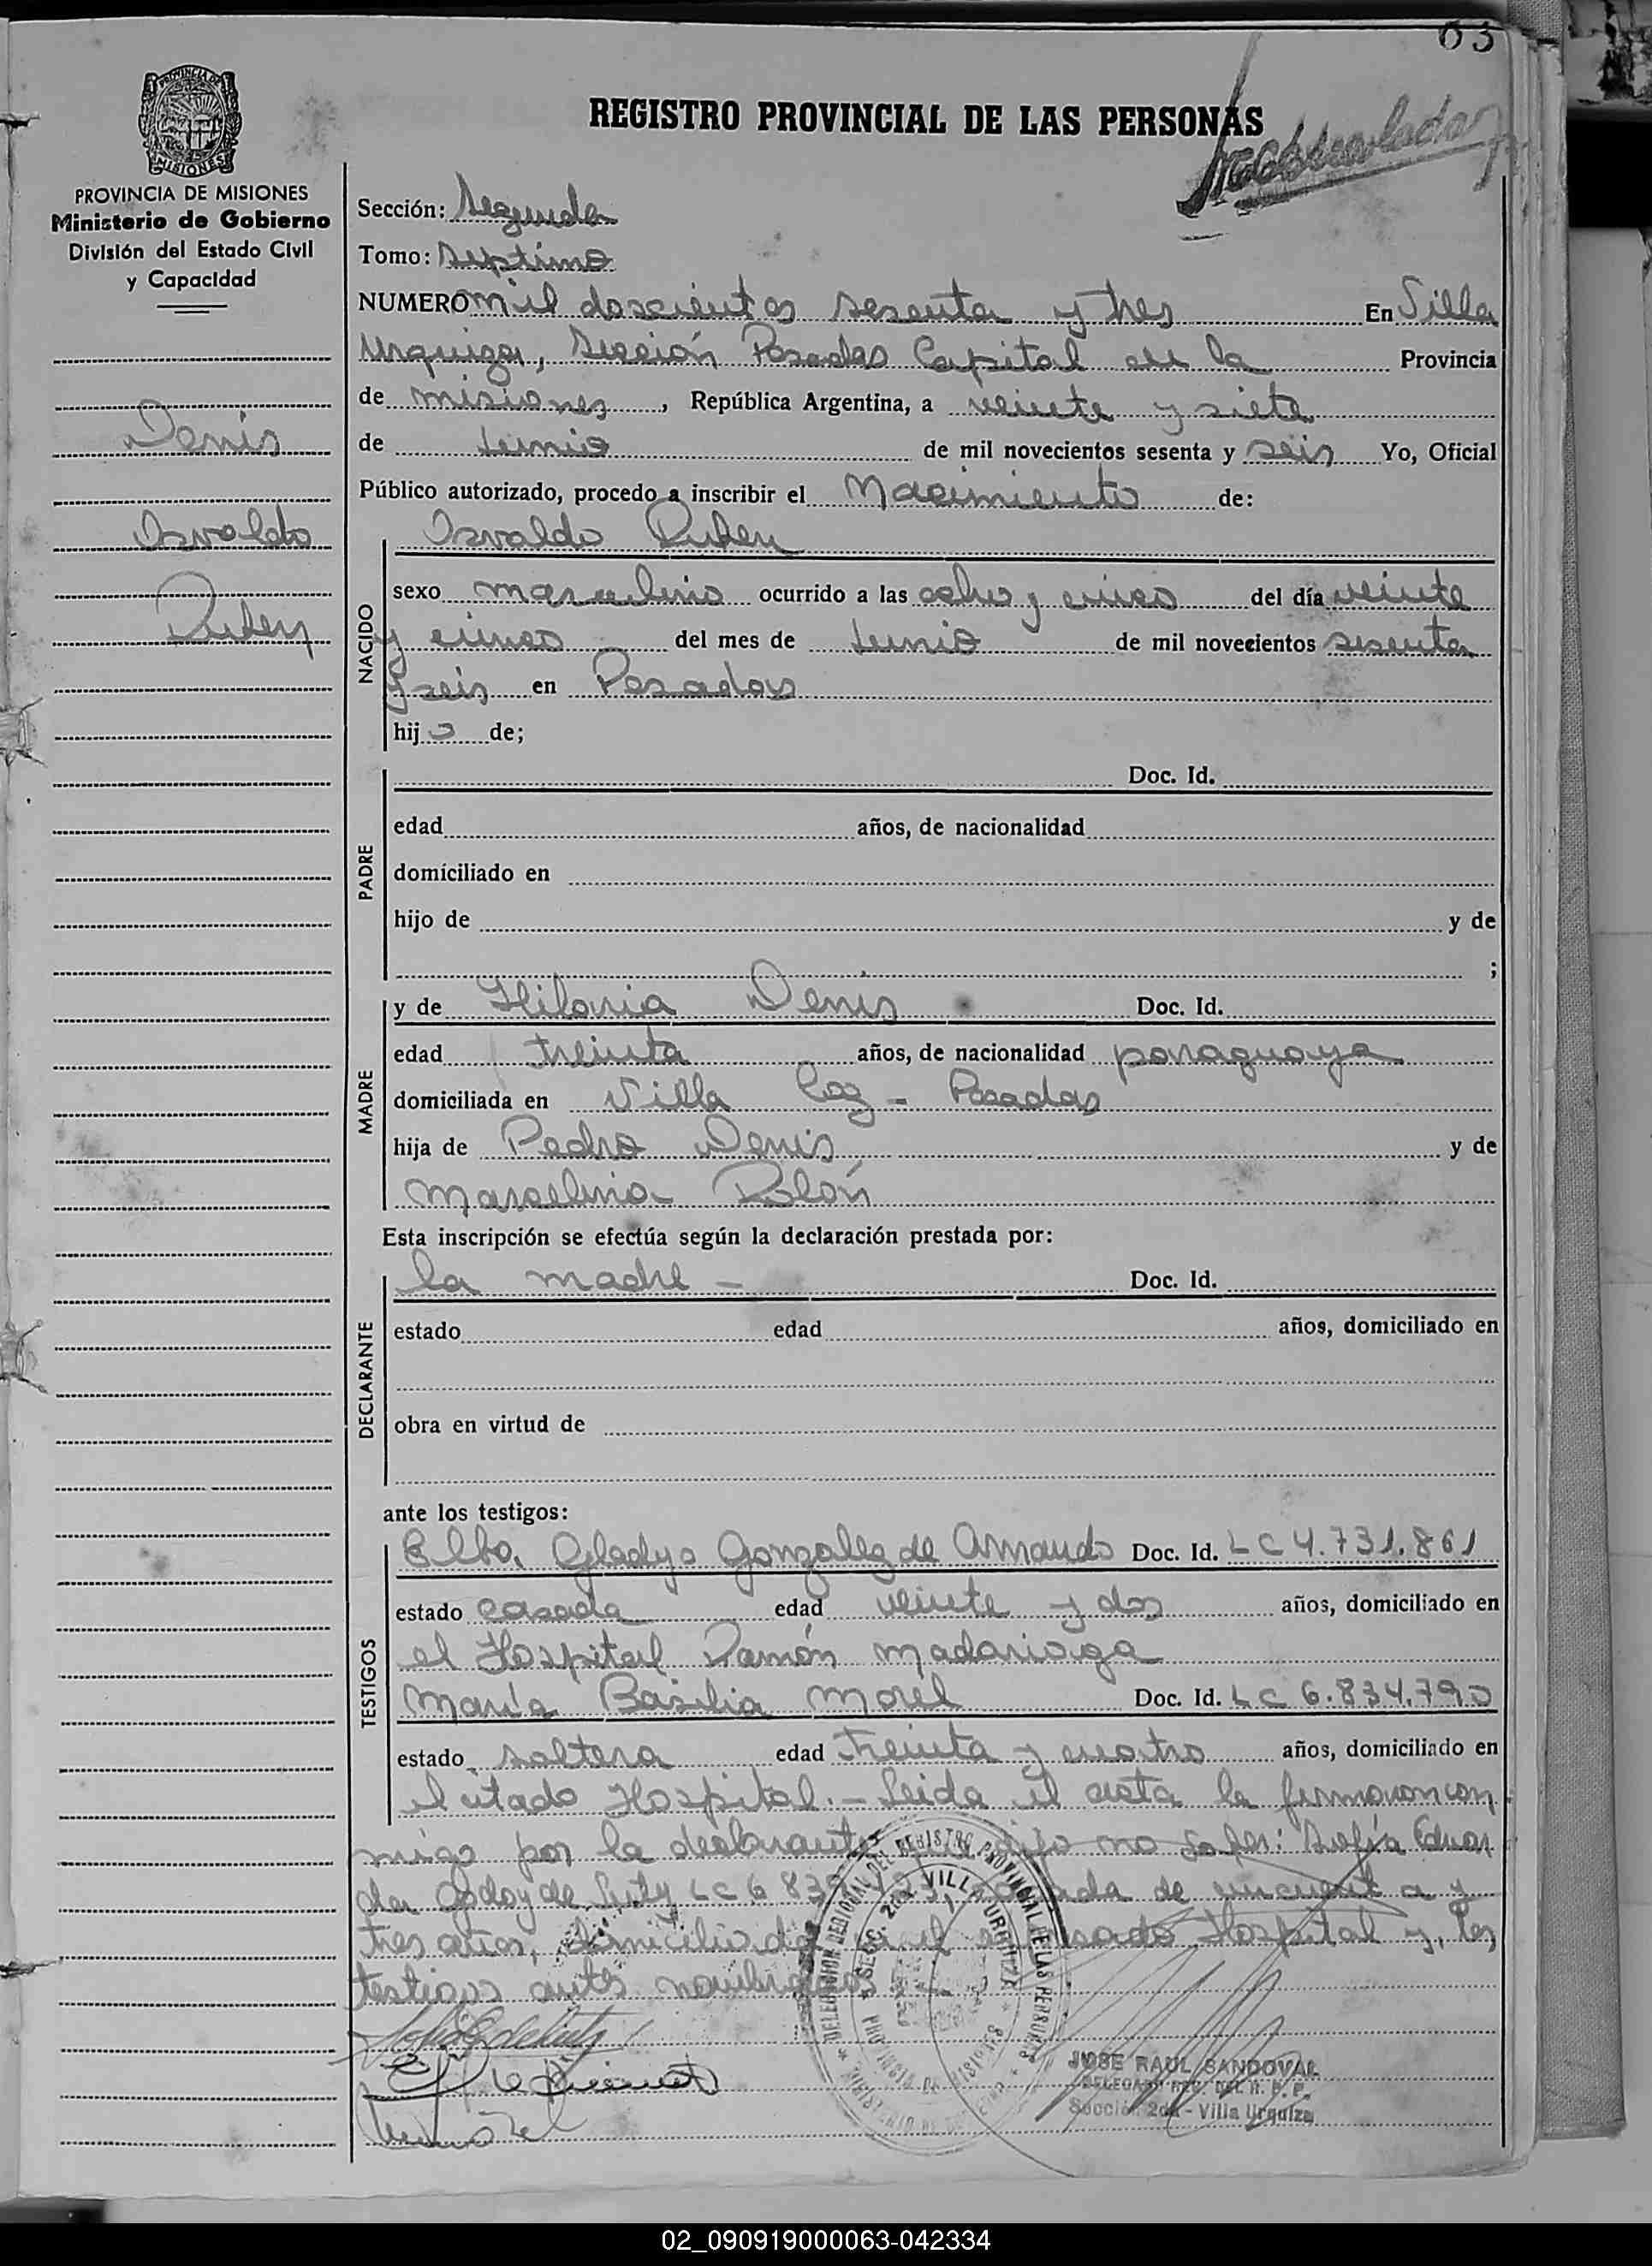 63
REGISTRO PROVINCIAL DE LAS PERSONAS
PROVINCIA DE MISIONES
Ministerio de Gobierno
División del Estado Civil
y Capacidad
Denis
Osvaldo
Ruben
Sección: Segunda
Tomo: Septimo
NUMERO mil doscientos sesenta y tres En Villa
Urquiza, Sección Posadas Capital en la Provincia
de misiones, República Argentina, a veinte y siete
de Junio de mil novecientos sesenta y seis Yo, Oficial
Público autorizado, procedo a inscribir el Nacimiento de:
Osvaldo Ruben
NACIDO
sexo masculino ocurrido a las ocho y cinco del día veinte
y cinco del mes de Junio de mil novecientos sesenta
y seis en Posadas
hijo de;
PADRE
Doc. Id.
edad años, de nacionalidad
domiciliado en
hijo de y de
;
MADRE
y de Hilaria Denis Doc. Id.
edad treinta años, de nacionalidad paraguaya
domiciliada en Villa - Posadas
hija de Pedro Denis y de
Marcelina Rolón
Esta inscripción se efectúa según la declaración prestada por:
DECLARANTE
la madre - Doc. Id.
estado edad años, domiciliado en
obra en virtud de
ante los testigos:
TESTIGOS
Elba Gladys Gonzalez de Doc. Id. LC 4.731.861
estado casada edad veinte y dos años, domiciliado en
el Hospital Ramón Madariaga
María Basilia Morel Doc. Id. LC 6.834.790
estado soltera edad treinta y cuatro años, domiciliado en
el citado Hospital. - Leida el acta la firmaron con
migo por la declarante que dijo no saber: Sofía Eduar
da Godoy de LC 6 de cincuenta y
tres años, domiciliada en el Hospital y, los
testigos antes nombrados
DELEGACION REGIONAL DEL REGISTRO PROVINCIAL DE LAS PERSONAS
SECC. 2da. VILLA URQUIZA
PROVINCIA DE MISIONES
MINISTERIO DE GOBIERNO
JOSE RAUL SANDOVAL
DELEGADO REG. DEL R. P. P.
Sección 2da - Villa Urquiza
02_090919000063-042334